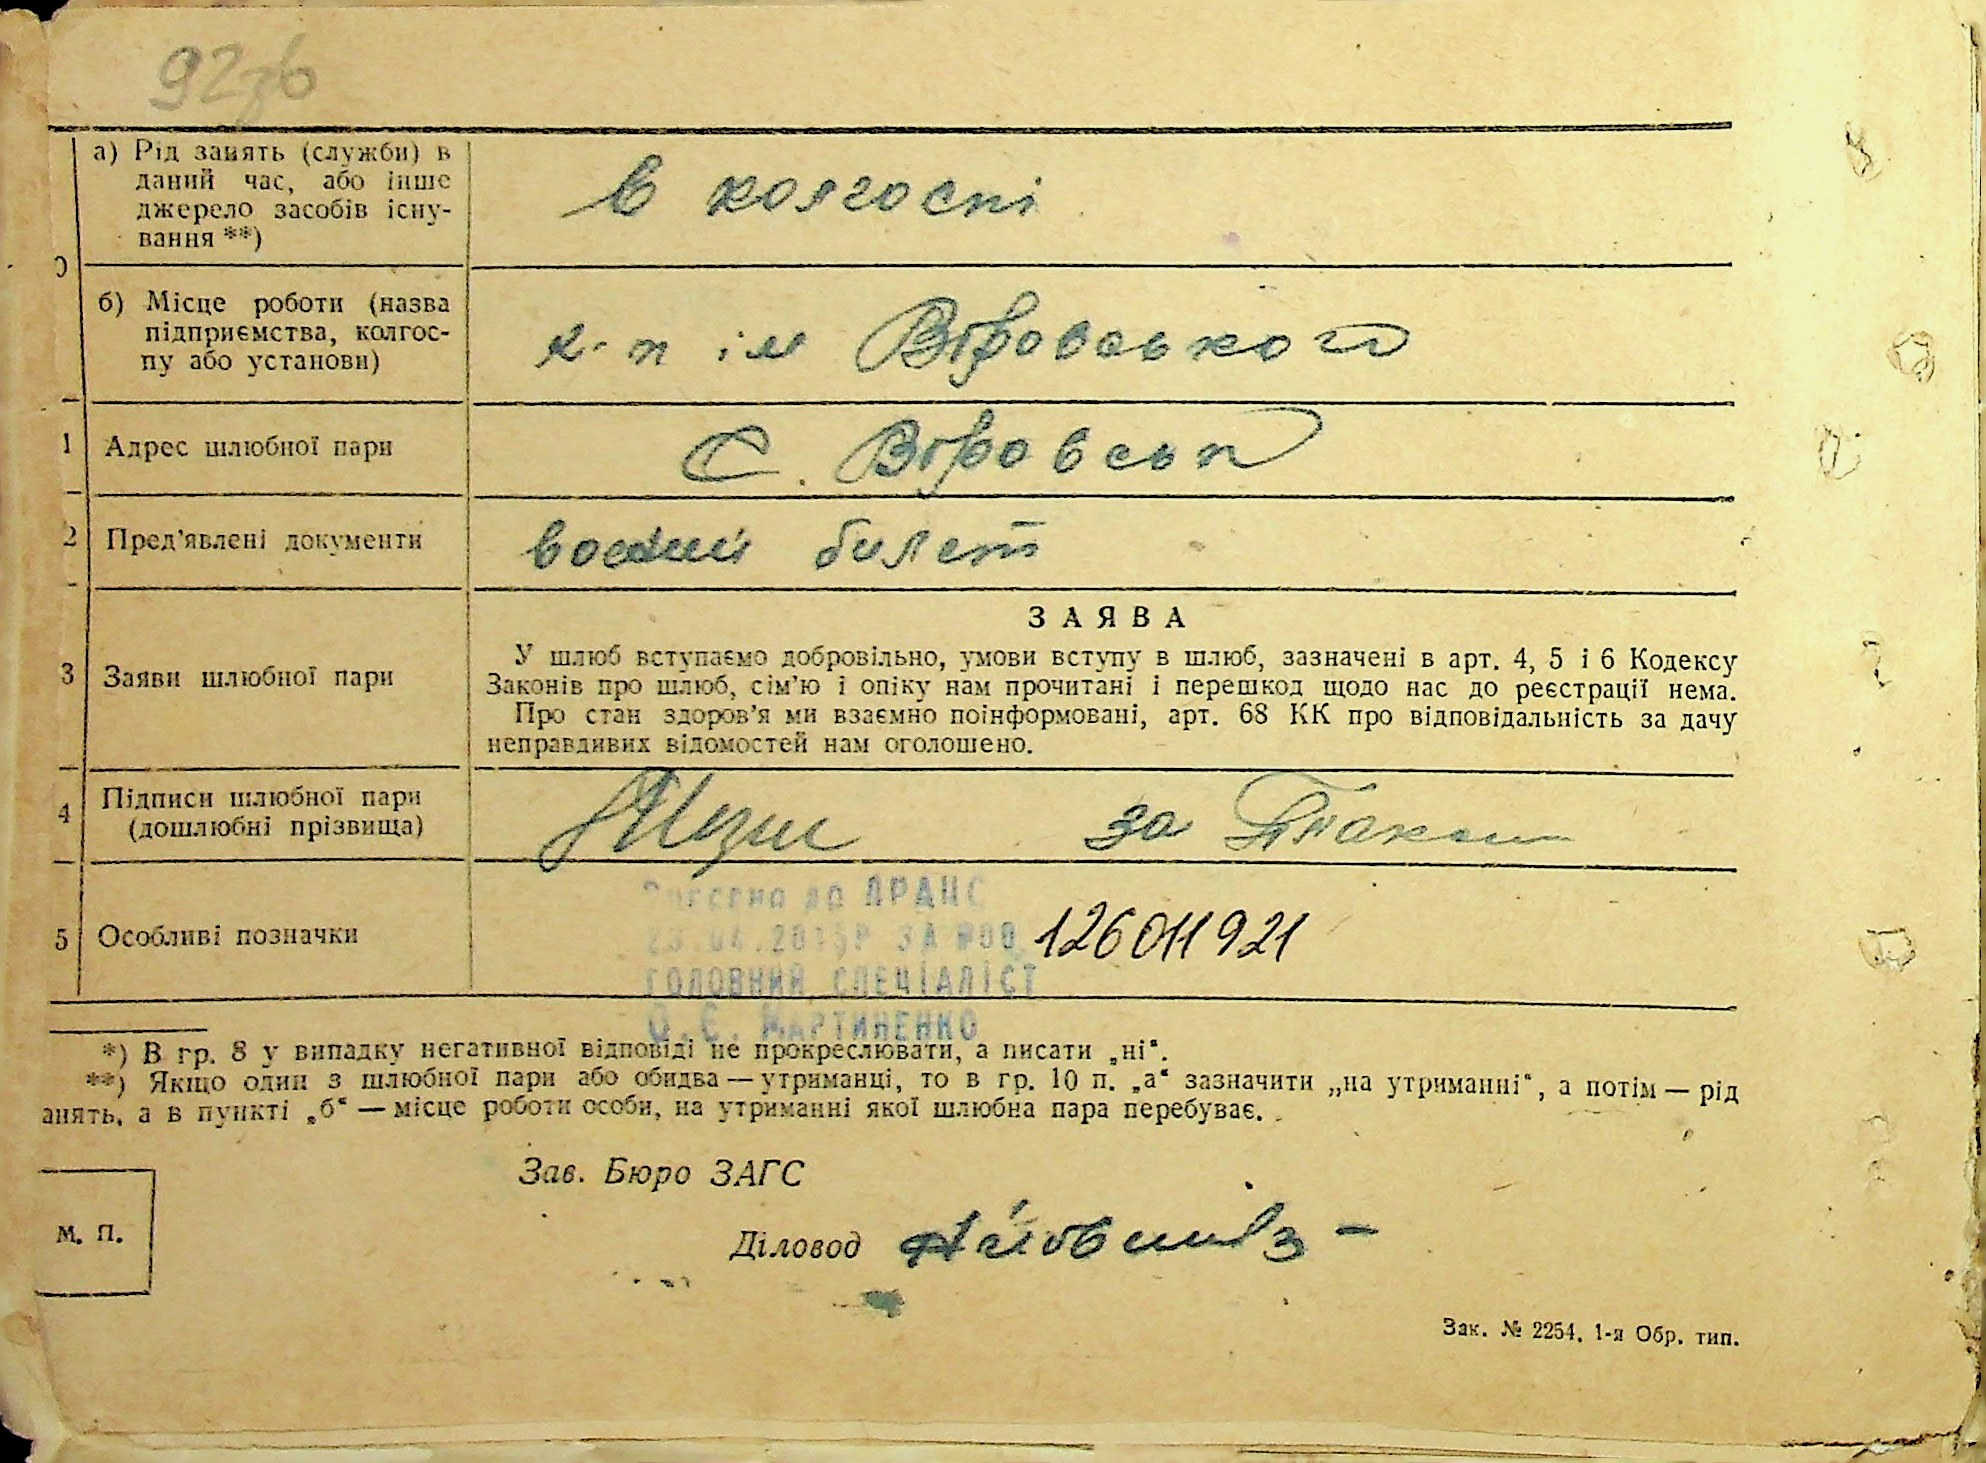 92зв
а) Рід занять (служби) в
даний час, або інше
джерело засобів існу-
вання **)
в колгоспі
б) Місце роботи (назва
підприємства, колгос-
пу або установи)
к-п ім Воровського
1 Адрес шлюбної пари
С. Воровськ
2 Пред'явлені документи
воєний билет
ЗАЯВА
3 Заяви шлюбної пари
У шлюб вступаємо добровільно, умови вступу в шлюб, зазначені в арт. 4, 5 і 6 Кодексу
Законів про шлюб, сім'ю і опіку нам прочитані і перешкод щодо нас до реєстрації нема.
Про стан здоров'я ми взаємно поінформовані, арт. 68 КК про відповідальність за дачу
неправдивих відомостей нам оголошено.
4 Підписи шлюбної пари
(дошлюбні прізвища)
за
5 Особливі позначки
до ДРАЦС
ЗА
126011921
ГОЛОВНИЙ СПЕЦІАЛІСТ
О.Є. МАРТИНЕНКО
*) В гр. 8 у випадку негативної відповіді не прокреслювати, а писати „ні“.
**) Якщо один з шлюбної пари або обидва — утриманці, то в гр. 10 п. „а“ зазначити „на утриманні“, а потім — рід
анять, а в пункті „б“ — місце роботи особи, на утриманні якої шлюбна пара перебуває.
Зав. Бюро ЗАГС
м. п.
Діловод
Зак. № 2254. 1-я Обр. тип.